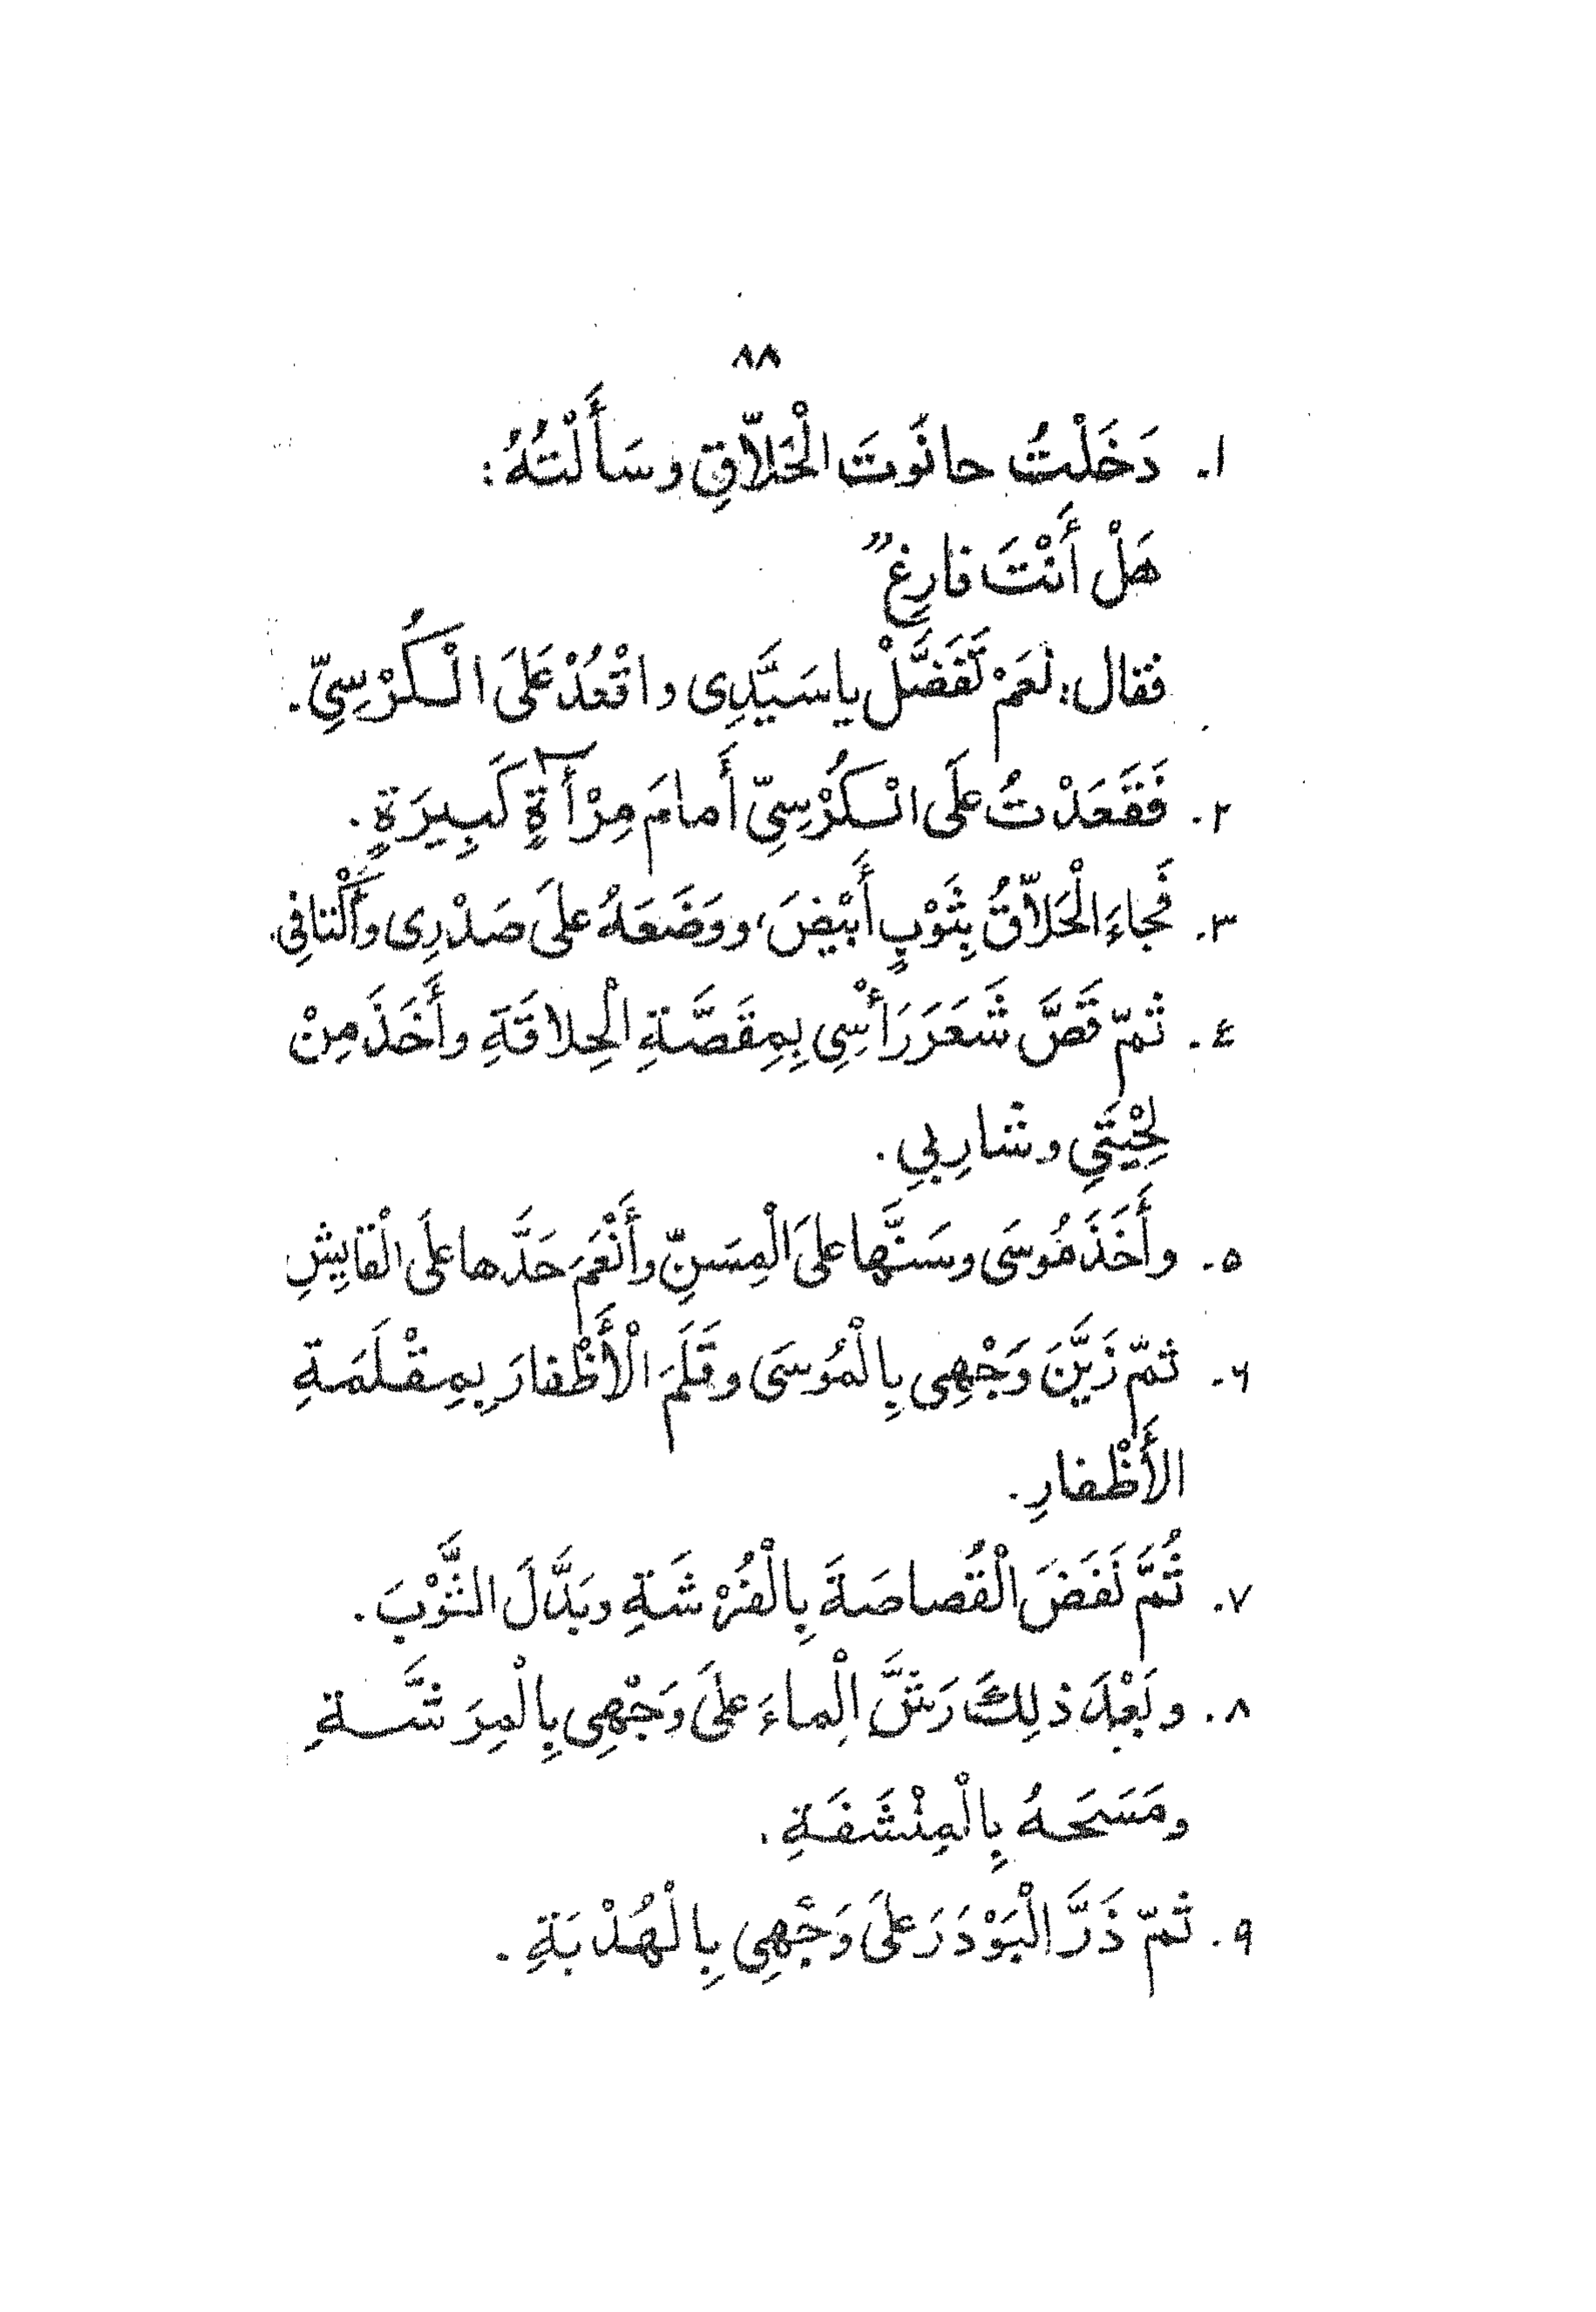 ٨٨
١. دَخَلْتُ حانَوتَ الْحَلاّقِ وسَأَلْتُهُ:
هَلْ أَنْتَ فارِغ"
فقال: نَعَمْ تَفَضَّلْ يا سَيَّدِى واقْعُدْ عَلَى الْكُرْسِيِّ.
٢. فَقَعَدْتُ عَلَى الْكُرْسِيِّ أَمامَ مِرْأَةٍ كَبِيرَةٍ.
٣. فَجاءَ الْحَلاّقُ بِثَوْبٍ أَبْيَضَ، ووَضَعَهُ عَلَى صَدْرِى وأَكْتافِي.
٤. ثمّ قَصَّ شَعَرَ رَأْسِي بِمِقَصَّةِ الْحِلاقَةِ وأَخَذَ مِنْ
لِحْيَتِي وشارِبِي.
٥. وأَخَذَ مُوسَى وسَنَّها عَلَى الْمِسَنِّ وأَنْعَمَ حَدَّها عَلَى الْقايِشِ
٦. ثمّ زَيَّنَ وَجْهِى بِالْمُوسَى وقَلَمَ الْأَظْفارَ بِمِقْلَمَةِ
الأَظْفارِ.
٧. ثُمَّ نَفَضَ الْقُصاصَةَ بِالْفُرْشَةِ وبَدَّلَ الثَّوْبَ.
٨. وبَعْدَ ذلِكَ رَشَّ الْماءَ عَلَى وَجْهِى بِالْمِرَشَّةِ
ومَسَحَهُ بِالْمِنْشَفَةِ.
٩. ثمّ ذَرَّ الْبَوْدَرَ عَلَى وَجْهِى بِالْهُدْبَةِ.